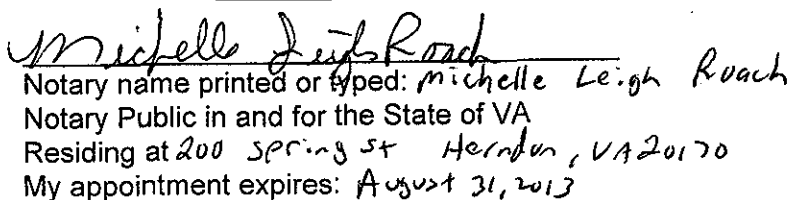 Michelle Leigh Roach
Notary name printed or typed: Michelle Leigh Roach
Notary Public in and for the State of VA
Residing at 200 Spring St Herndon, VA 20170
My appointment expires: August 31, 2013